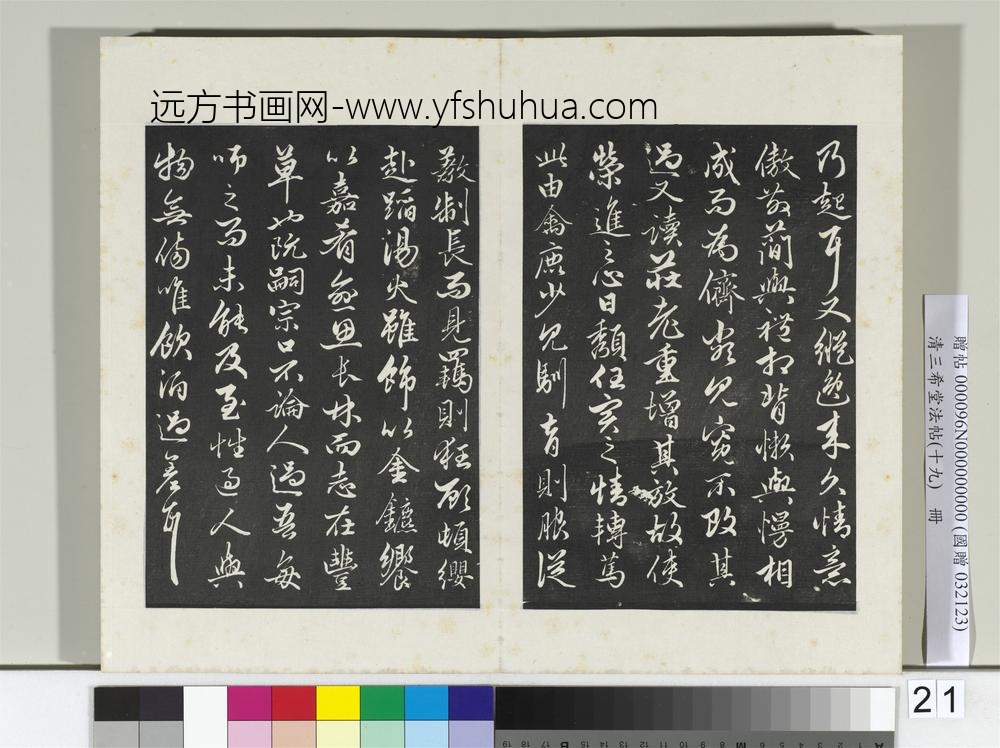 远方书画网-www.yfshuhua.com
乃起耳又縱逸來久情意
傲散簡與禮相背懶與慢相
成而為儕類見寬不攻其
過又讀莊老重增其放故使
榮進之心日頹任實之情轉篤
此由禽鹿少見馴育則服從
教制長而見羈則狂顧頓纓
赴蹈湯火雖飾以金鑣饗
以嘉肴愈思長林而志在豐
草也阮嗣宗口不論人過吾每
師之而未能及至性過人與
物無傷唯飲酒過差耳
贈帖 000096N000000000 (國贈 032123)
清三希堂法帖(十九) 冊
21